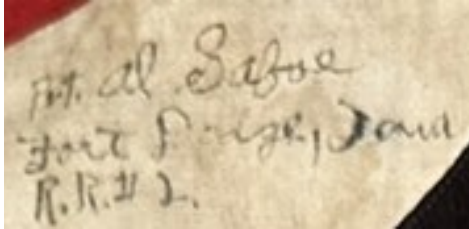 Pvt. Al Saboe
Fort Dodge, Iowa
R.R.# 2.